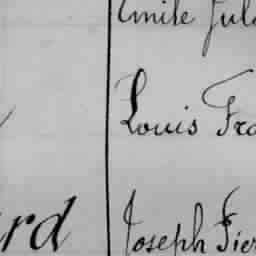 Emile Jul
Louis Fra
ard Joseph Pier